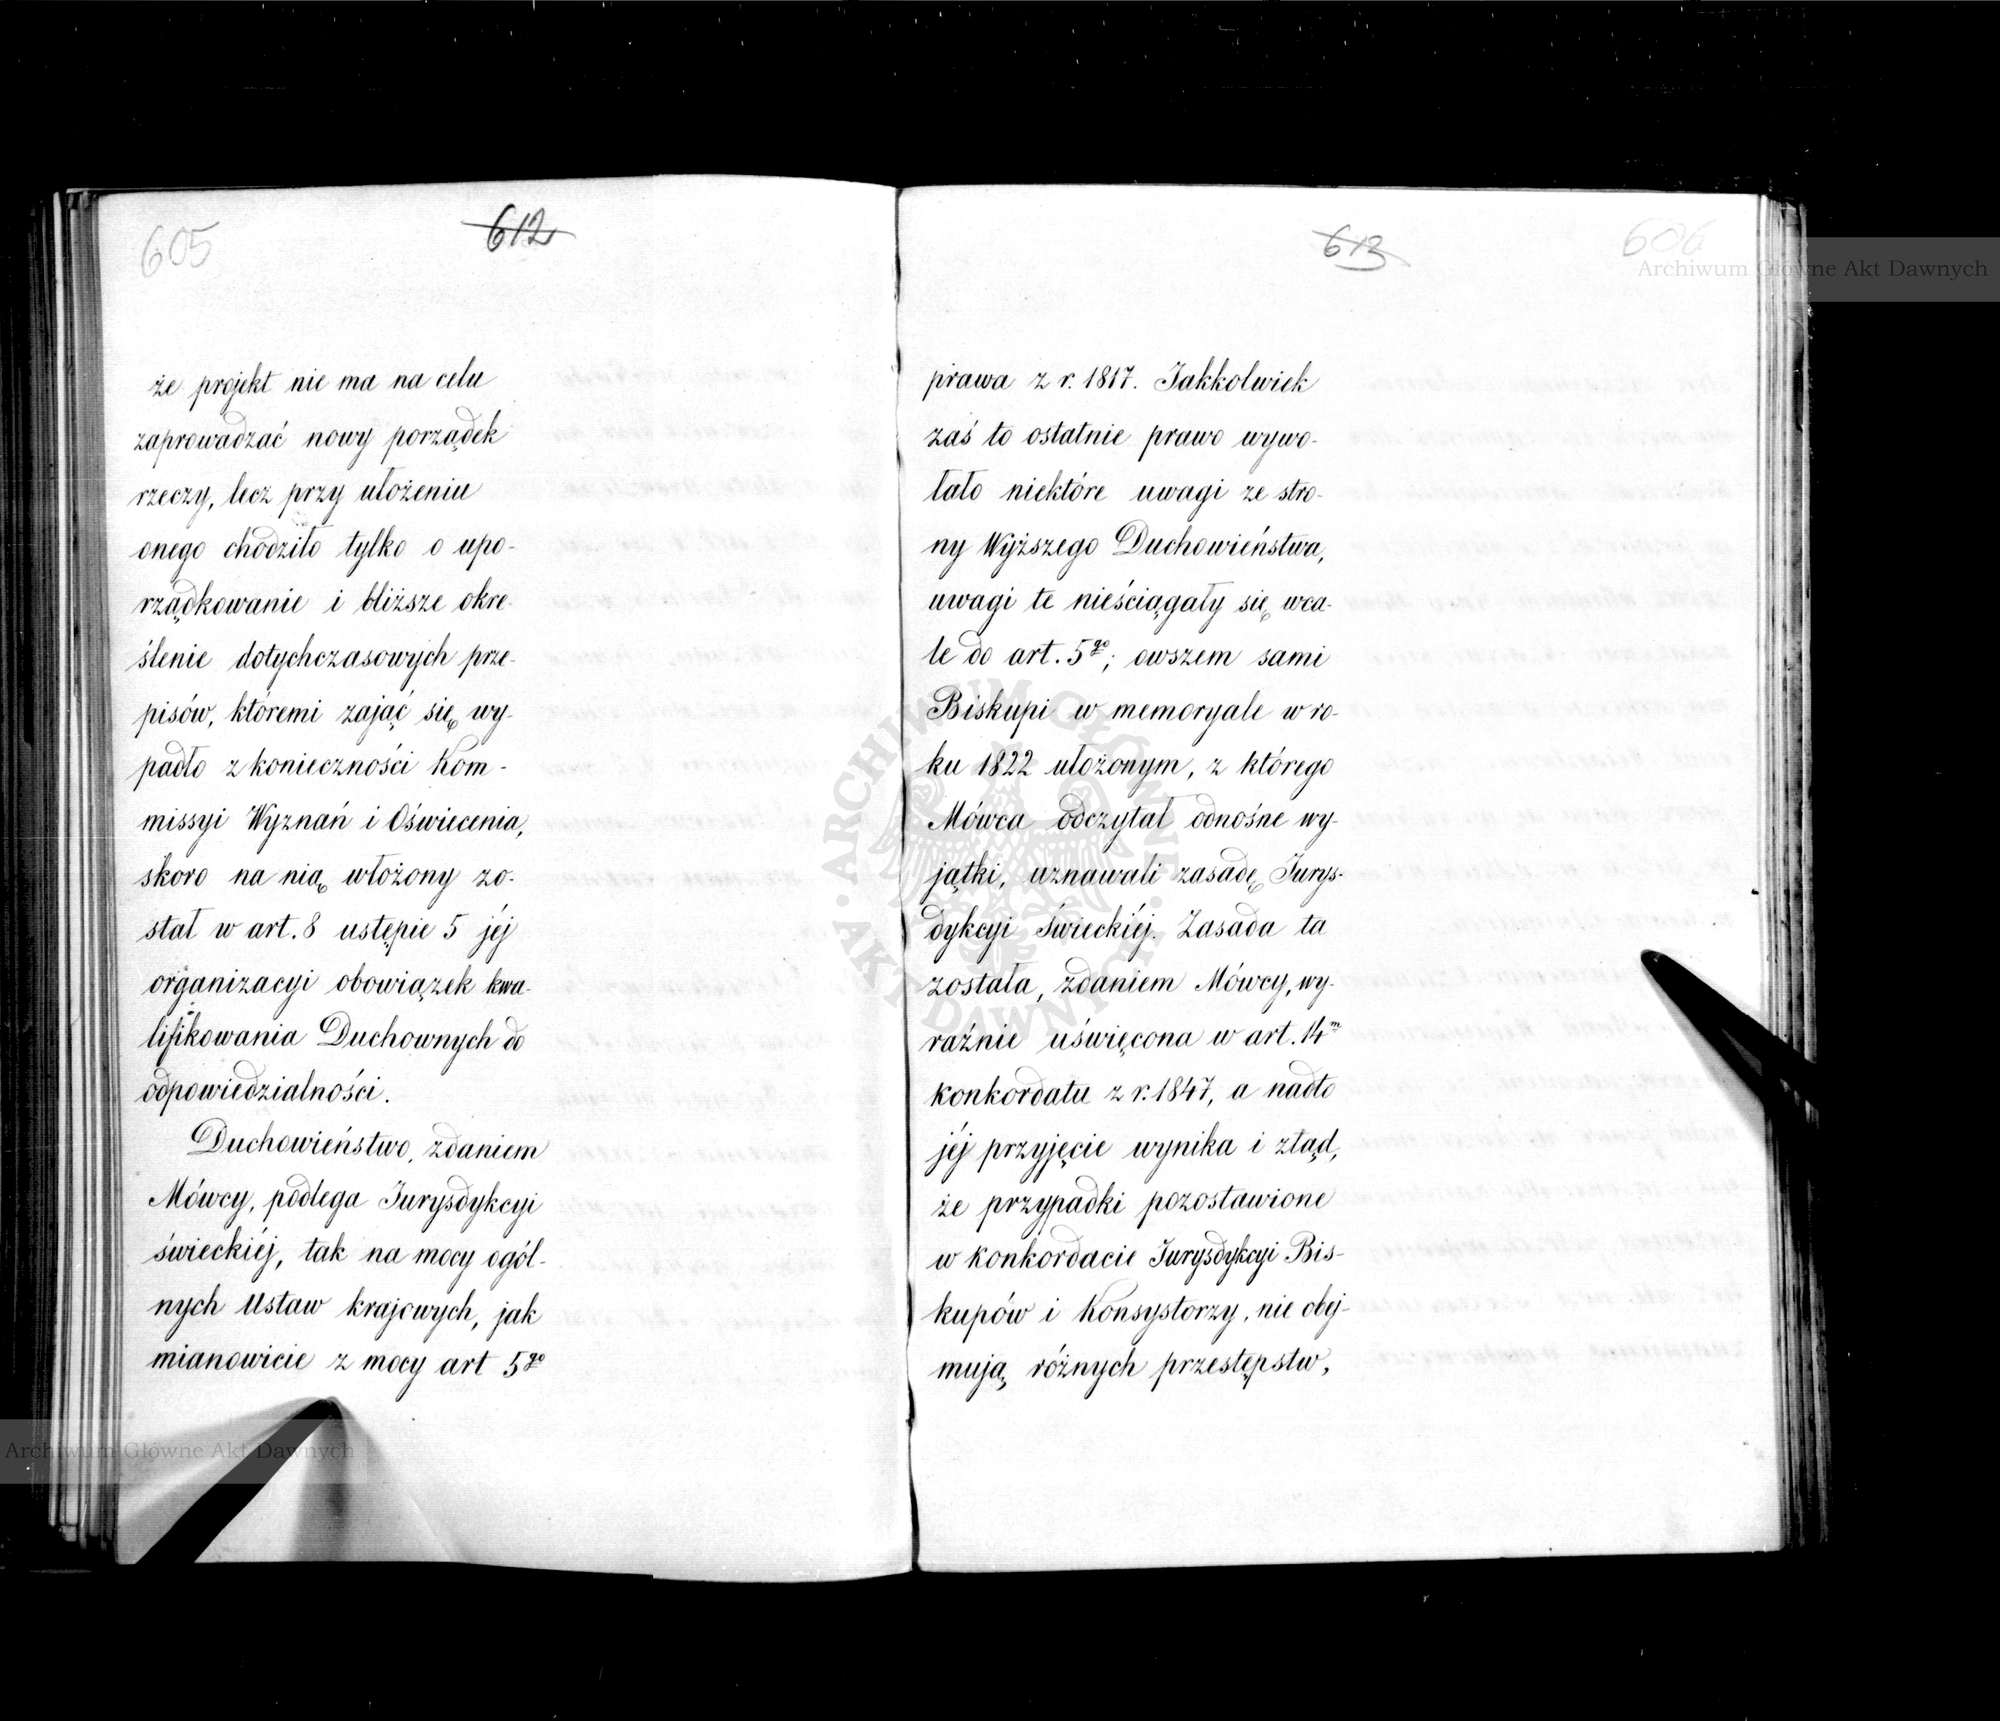 605
612
że projekt nie ma na celu
zaprowadzać nowy porządek
rzeczy, lecz przy ułożeniu
onego chodziło tylko o upo-
rządkowanie i bliższe okre-
ślenie dotychczasowych prze-
pisów, któremi zająć się wy-
padło z konieczności Kom-
missyi Wyznań i Oświecenia,
skoro na nią włożony zo-
stał w art. 8 ustępie 5 jéj
organizacyi obowiązek kwa-
lifikowania Duchownych do
odpowiedzialności.
Duchowieństwo, zdaniem
Mówcy, podlega Jurysdykcyi
świeckiéj, tak na mocy ogól-
nych Ustaw krajowych, jak
mianowicie z mocy art 5go
613
606
prawa z r. 1817. Jakkolwiek
zaś to ostatnie prawo wywo-
łało niektóre uwagi ze stro-
ny Wyższego Duchowieństwa,
uwagi te nieściągały się wca-
le do art. 5go; owszem sami
Biskupi w memoryale w ro-
ku 1822 ułożonym, z którego
Mówca odczytał odnośne wy-
jątki, uznawali zasadę Jurys-
dykcyi Świeckiéj. Zasada ta
została, zdaniem Mówcy, wy-
raźnie uświęcona w art. 14m
konkordatu z r. 1847, a nadto
jéj przyjęcie wynika i ztąd,
że przypadki pozostawione
w konkordacie Jurysdykcyi Bis-
kupów i Konsystorzy, nie obej-
mują różnych przestępstw,
Archiwum Główne Akt Dawnych
ARCHIWUM GŁÓWNE AKT DAWNYCH
Archiwum Główne Akt Dawnych